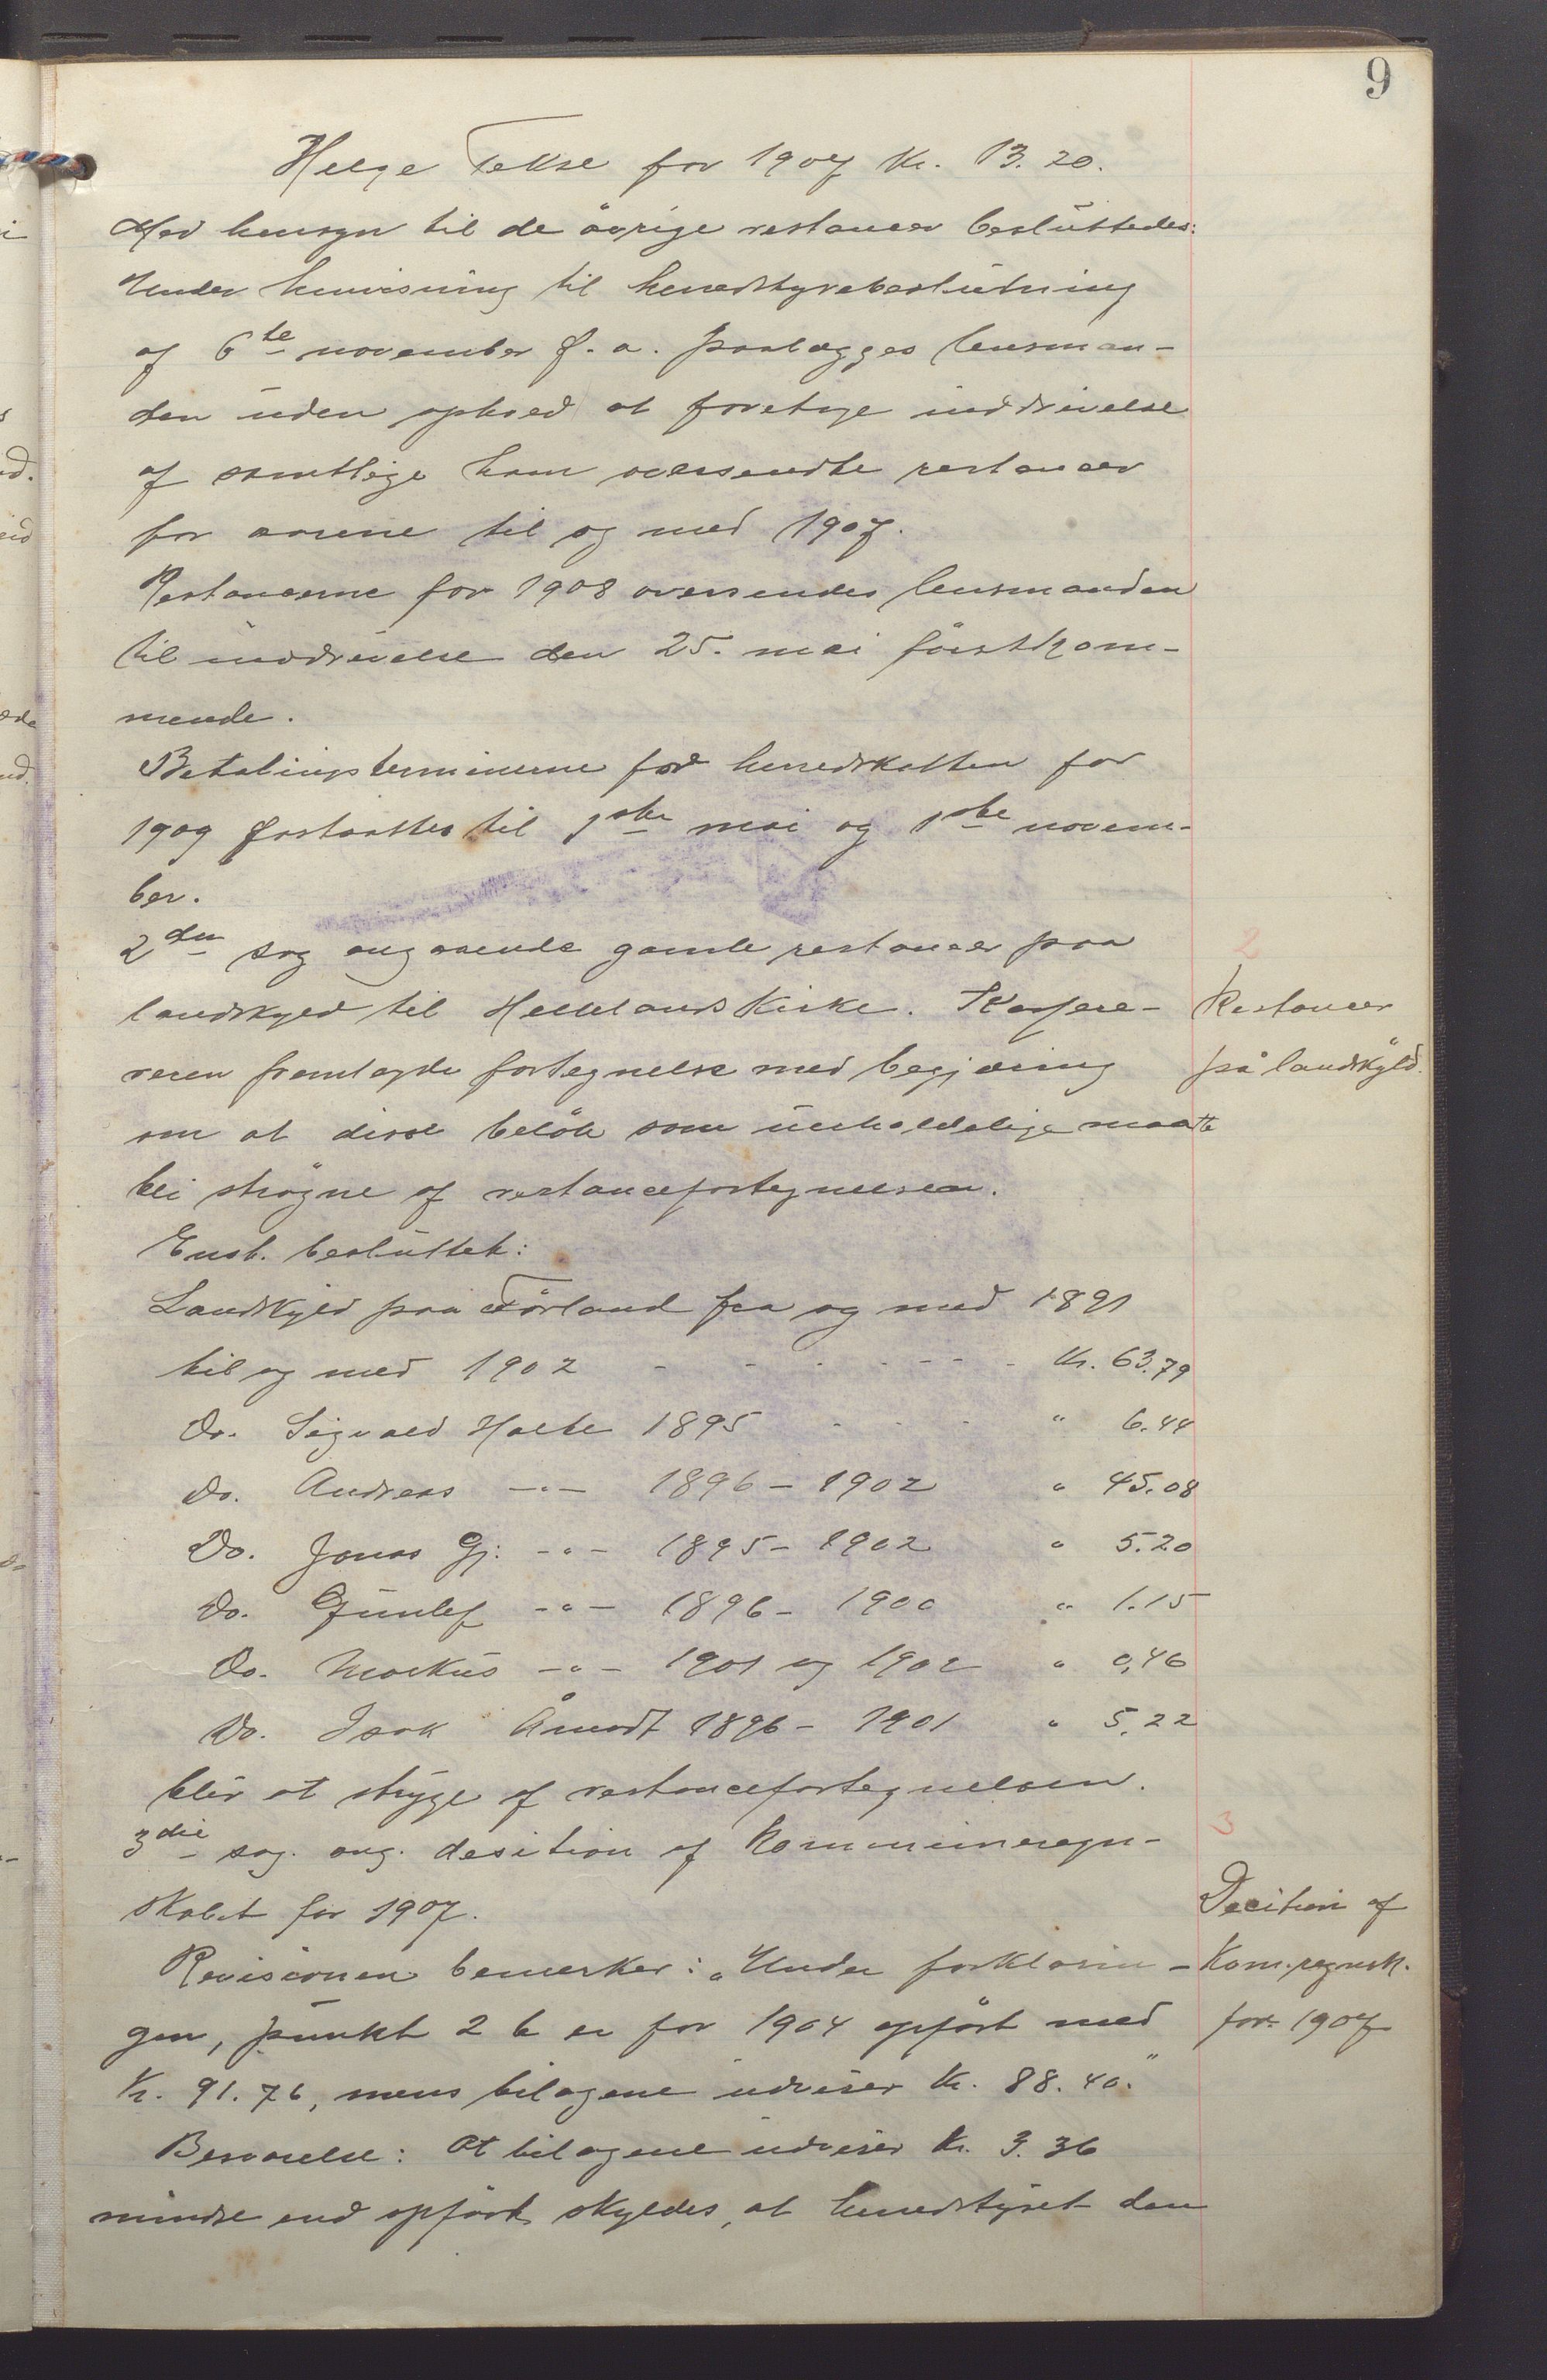 9
Helge Tekse for 1907 Kr. 13.20.
Med hensyn til de øvrige restancer besluttedes:
Under henvisning til herredstyrebeslutning
af 6te november f. a. paalægges lensman-
den uden ophold at foretage inddrivelse
af samtlige ham oversendte restancer
for aarene til og med 1907.
Restancerne for 1908 oversendes lensmanden
til inddrivelse den 25. mai förstkom-
mende.
Betalingsterminerne for herredskatten for
1909 fastsattes til 1ste mai og 1ste novem-
ber.
2den sag angaaende gamle restancer paa
landskyld til Hetlands Kirke. Kasse-
reren fremlagde fortegnelse med begjæring
om at disse beløb som uerholdelige maatte
bli strøgne af restancefortegnelsen.
Enst. besluttet:
Landskyld paa Förland fra og med 1891
til og med 1902 - - - - - - - Kr. 63.79
Do. Sigvald Holte 1895 - - - " 6.44
Do. Andreas -"- 1896 - 1902 " 45.08
Do. Jonas Gj. -"- 1895 - 1902 " 5.20
Do. Gunlef -"- 1896 - 1900 " 1.15
Do. Markus -"- 1901 og 1902 " 0,46
Do. Isak Åmodt 1896 - 1901 " 5.22
blir at stryge af restancefortegnelsen.
3die sag. ang. desition af Kommuneregn-
skabet for 1907.
Revisionen bemerker: „Under forklarin-
gen, punkt 2 b er for 1904 opført med
Kr. 91.76, mens bilagene udviser Kr. 88.40."
Besvarelse: At bilagene udviser Kr. 3.36
mindre end opført skyldes, at herredstyret den
2
Restancer
på landskÿld.
3
Decition af
Kom. regnsk.
for 1907